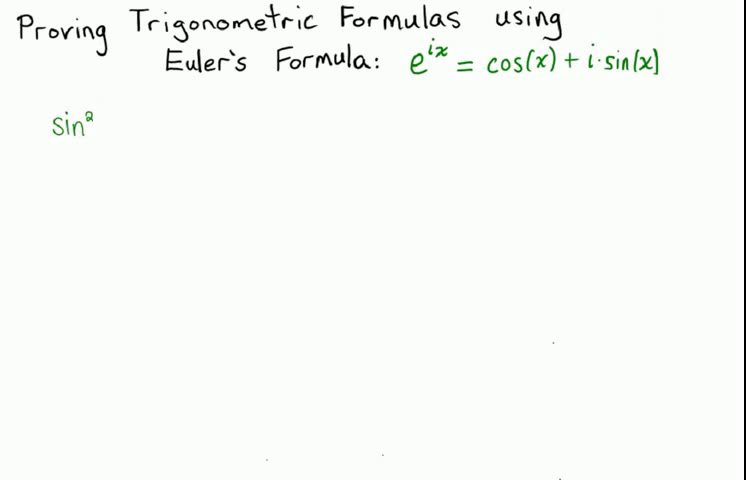 Proving Trigonometric Formulas using
Euler's Formula: e^{ix} = cos(x) + i·sin(x)
sin²